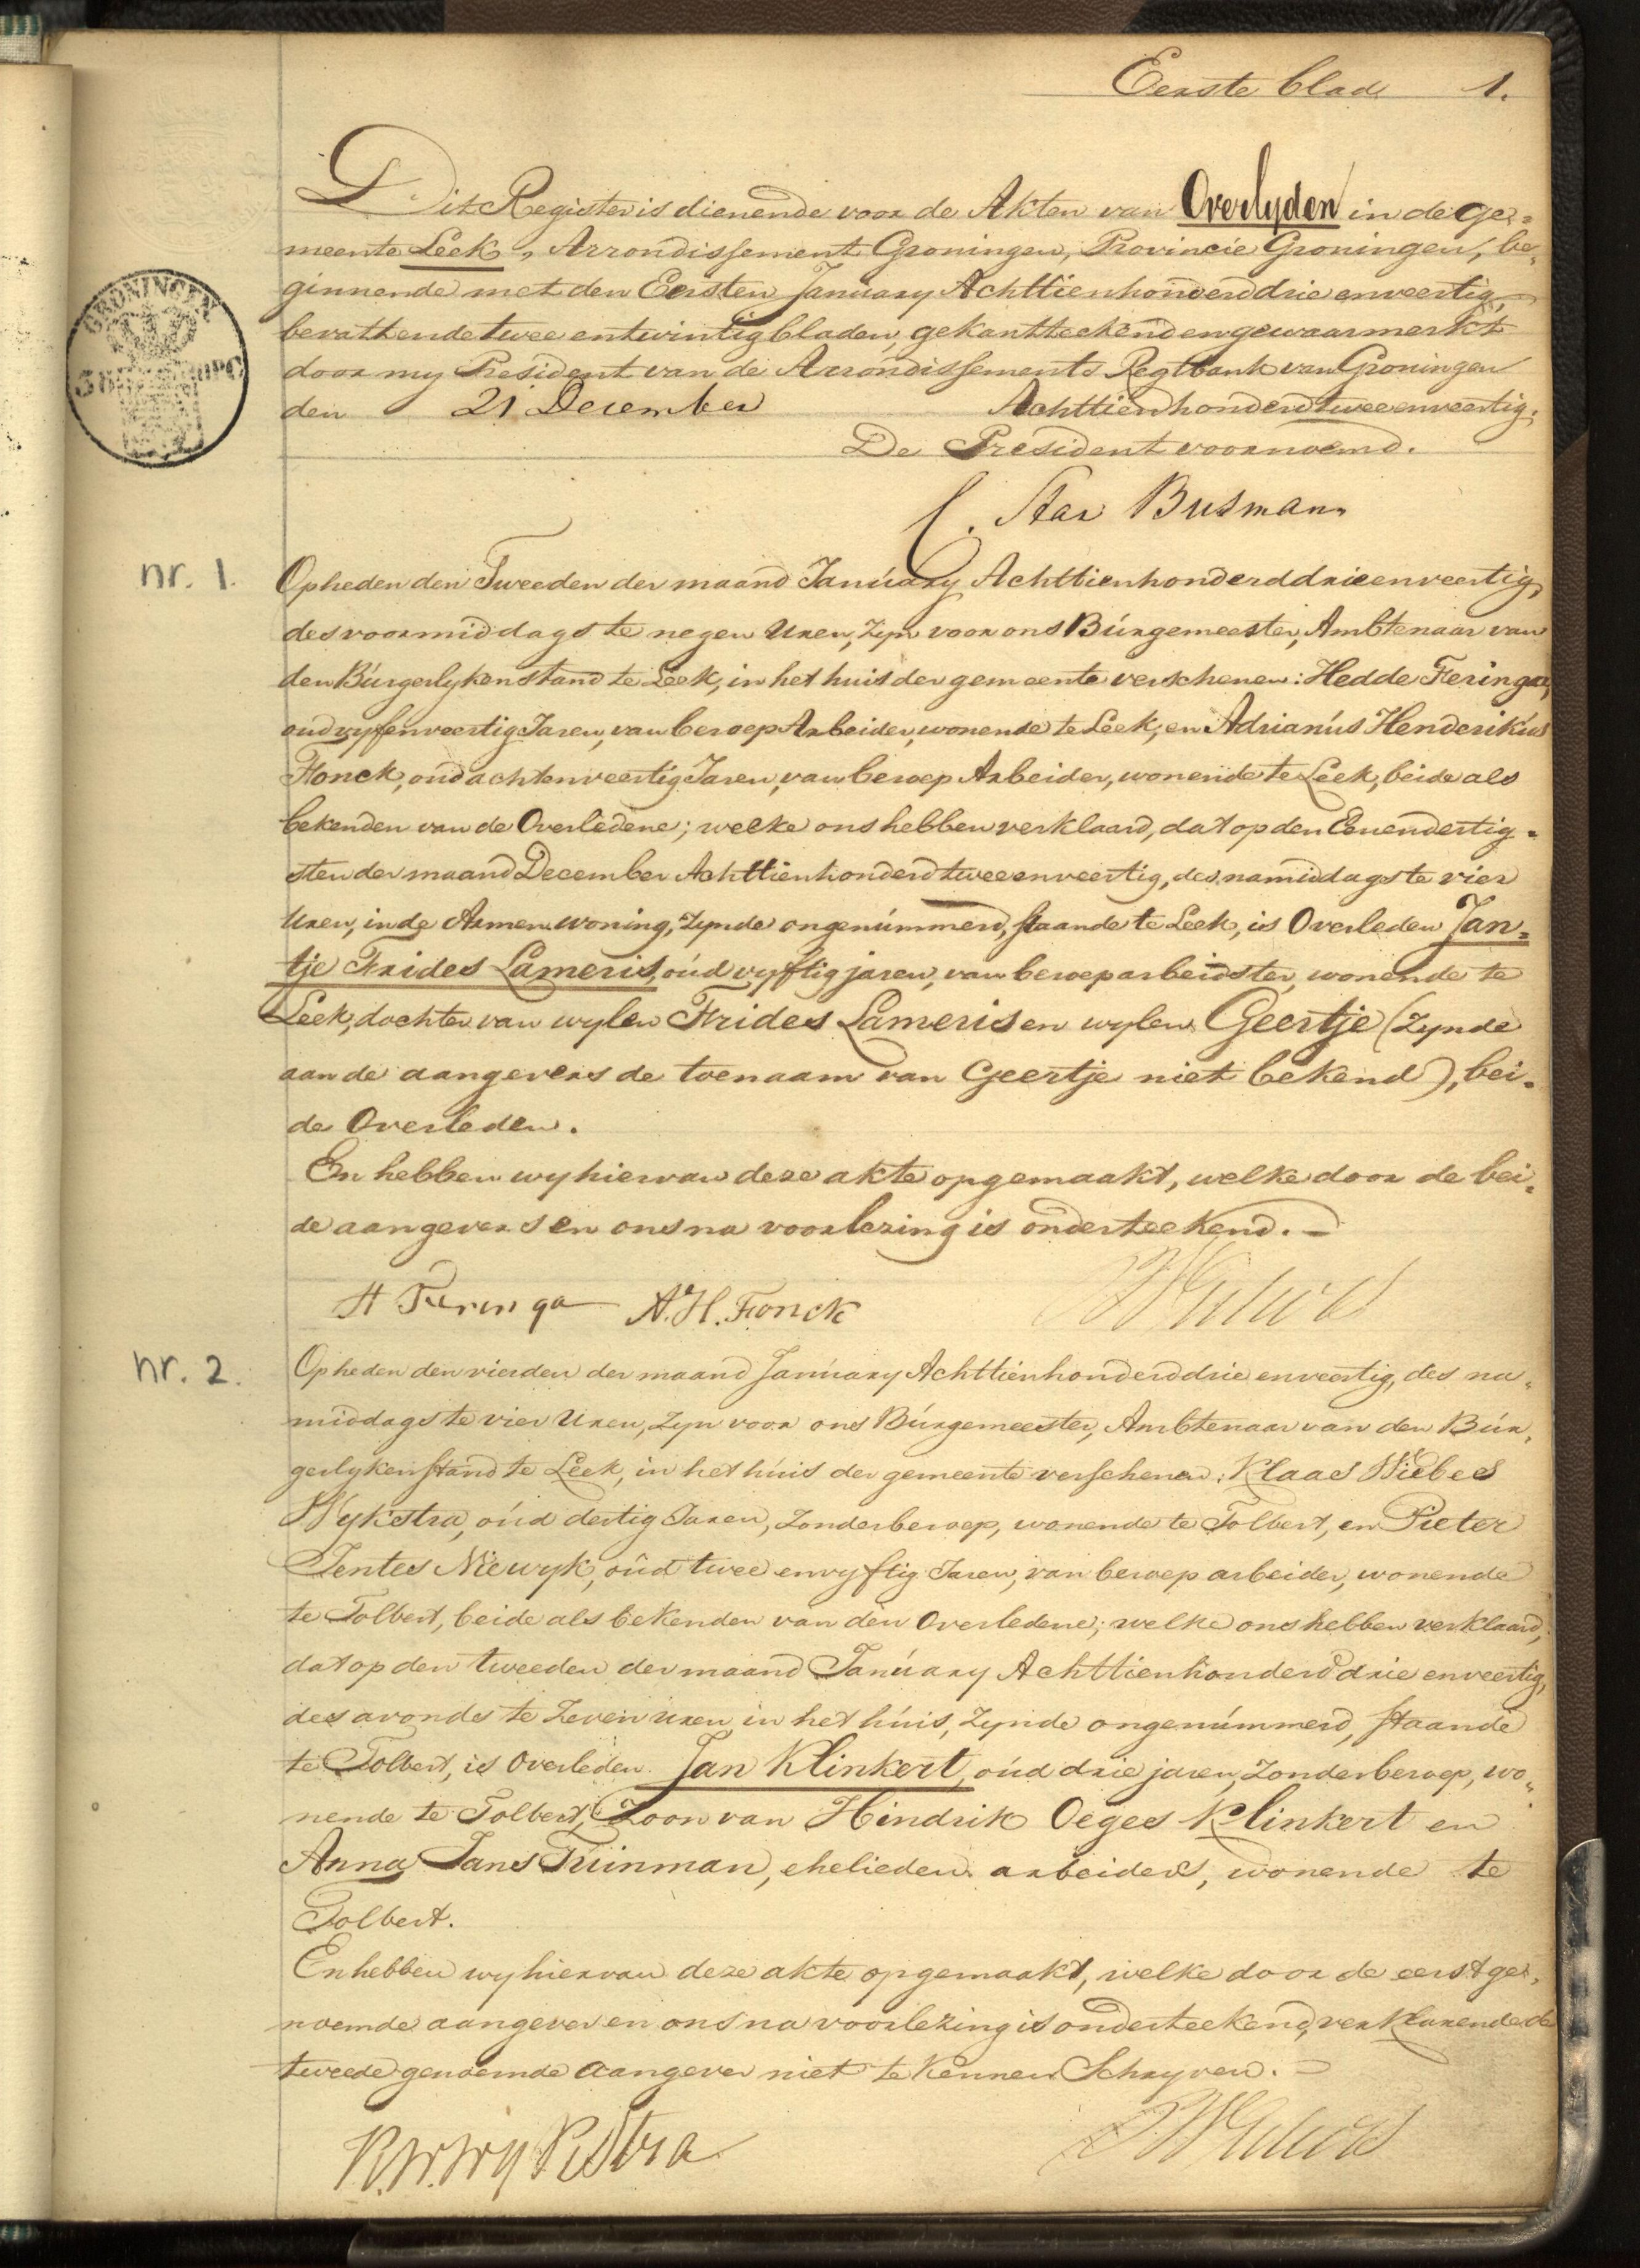 Eerste blad 1.
Dit Register is dienende voor de Akten van Overlyden in de ge=
meente Leek, Arrondissement Groningen, Provincie Groningen, be=
ginnende met den Eersten January Achttienhonderd drie en veertig,
bevattende twee en twintig bladen, gekantteekend en gewaarmerkt
door my President van de Arrondissements Regtbank van Groningen
den 21 December Achttienhonderd twee en veertig.
De President voornoemd.
C. Star Busmann
GRONINGEN
nr. 1.
Op heden den Tweeden der maand January Achttienhonderd drie en veertig,
des voormiddags te negen Uren, zyn voor ons Burgemeester, Ambtenaar van
den Burgerlyken stand te Leek, in het huis der gemeente verschenen: Hedde Feringa,
oud vyf en veertig Jaren, van beroep Arbeider, wonende te Leek, en Adrianus Henderikus
Fonck, oud acht en veertig Jaren, van beroep Arbeider, wonende te Leek, beide als
bekenden van de Overledene; welke ons hebben verklaard, dat op den Eenendertig=
sten der maand December Achttienhonderd twee en veertig, des namiddags te vier
Uren, in de Armen woning, zynde ongenummerd, staande te Leek, is Overleden Jan=
tje Frides Lameris, oud vyftig jaren, van beroep arbeidster, wonende te
Leek, dochter van wylen Frides Lameris en wylen Geertje (zynde
aan de aangevers de toenaam van Geertje niet bekend), bei=
de Overleden.
En hebben wy hiervan deze akte opgemaakt, welke door de bei=
de aangevers en ons na voorlezing is onderteekend.
H Feringa A.H. Fonck
nr. 2.
Op heden den vierden der maand January Achttienhonderd drie en veertig, des na=
middags te vier Uren, zyn voor ons Burgemeester, Ambtenaar van den Bur=
gerlyken stand te Leek, in het huis der gemeente verschenen: Klaas Wiebes
Wykstra, oud dertig Jaren, zonder beroep, wonende te Tolbert, en Pieter
Jentes Niewyk, oud twee en vyftig Jaren, van beroep arbeider, wonende
te Tolbert, beide als bekenden van den Overledene; welke ons hebben verklaard,
dat op den tweeden der maand January Achttienhonderd drie en veertig,
des avonds te zeven uren in het huis, zynde ongenummerd, staande
te Tolbert, is Overleden Jan Klinkert, oud drie jaren, zonder beroep, wo=
nende te Tolbert, Zoon van Hindrik Oeges Klinkert en
Anna Jans Tuinman, ehelieden arbeiders, wonende te
Tolbert.
En hebben wy hiervan deze akte opgemaakt, welke door de eerst ge=
noemde aangever en ons na voorlezing is onderteekend, verklarende de
tweede genoemde aangever niet te kennen Schryven.
K.W. Wykstra